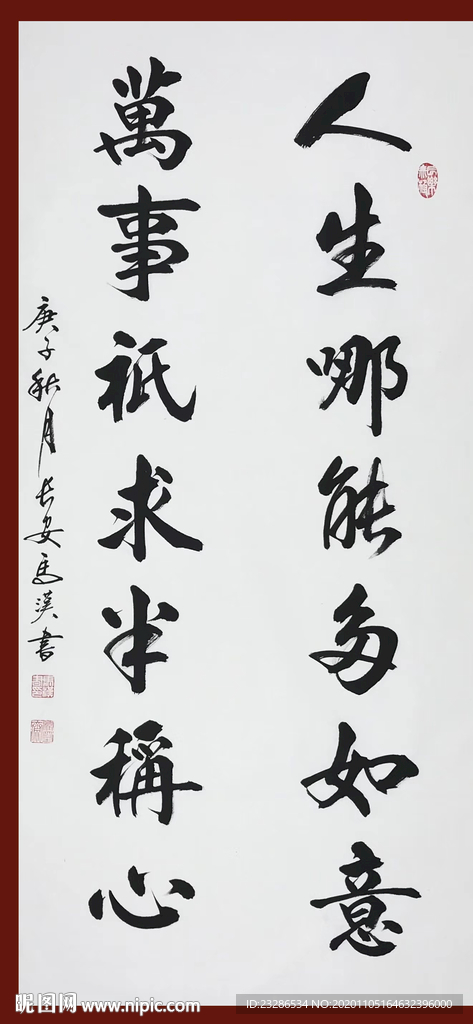 人生哪能多如意
萬事祇求半稱心
庚子秋月長安馬漢書
昵图网 www.nipic.com
ID:23286534 NO:20201105164632396000